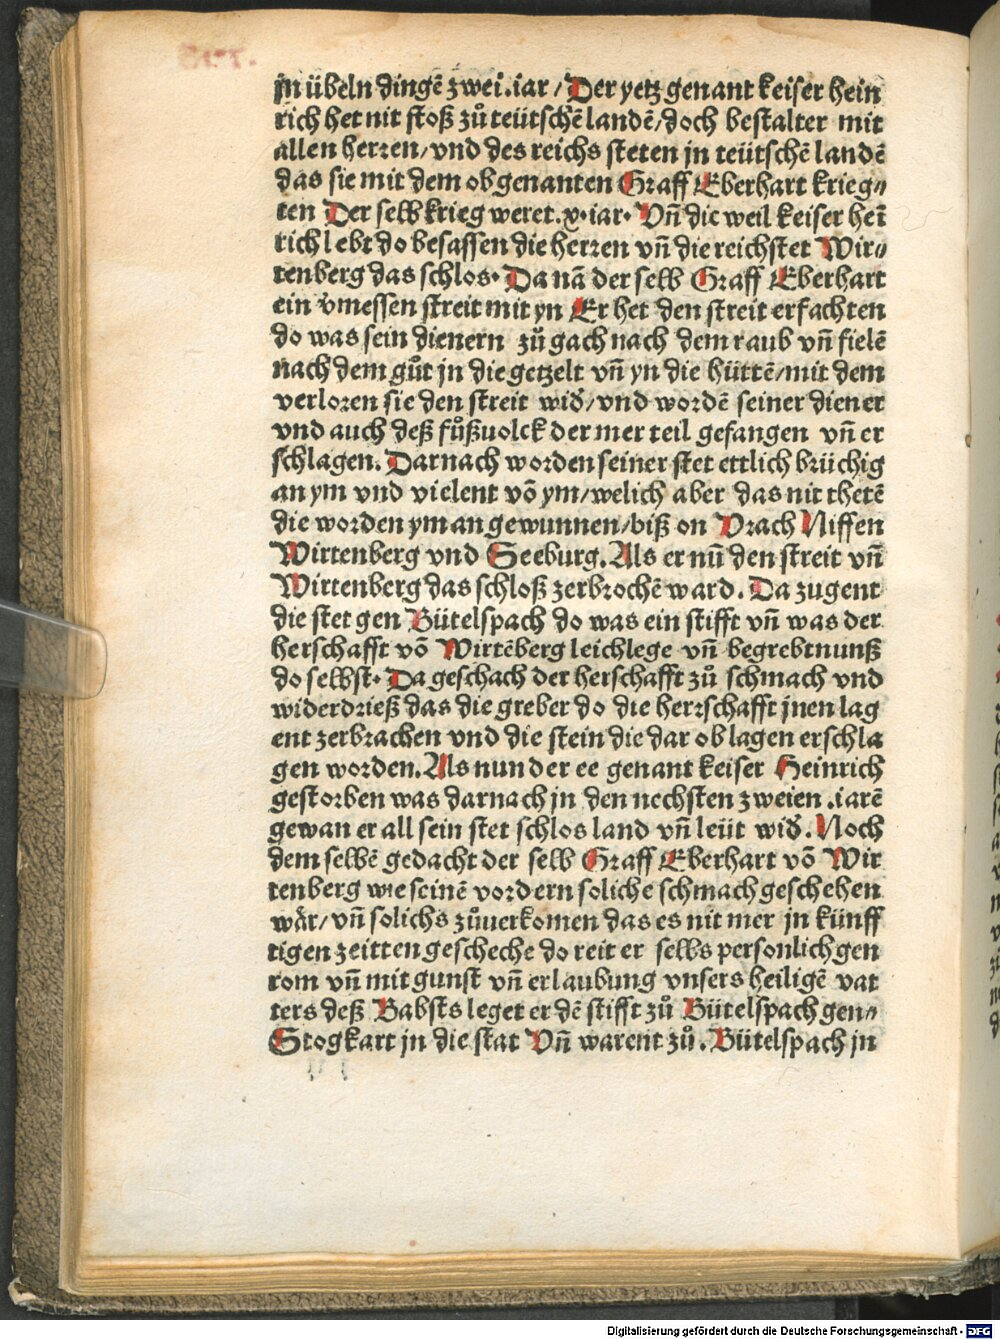 jn übeln dingē zwei.iar/Der yetz genant keiser hein
rich het nit stoß zů teütschē landē/doch bestalter mit
allen herren/vnd des reichs steten jn teütschē landē
das sie mit dem obgenanten Graff Eberhart krieg⸗
ten Der selb krieg weret.x.iar. Vn̄ die weil keiser heī
rich lebt do besassen die herren vn̄ die reichstet Wir⸗
tenberg das schlos. Da nā der selb Graff Eberhart
ein v̄messen streit mit yn Er het den streit erfachten
do was sein dienern zů gach nach dem raub vn̄ fielē
nach dem gůt jn die getzelt vn̄ yn die hüttē/mit dem
verloren sie den streit wid̄/vnd wordē seiner diener
vnd auch deß fůßuolck der mer teil gefangen vn̄ er
schlagen. Darnach worden seiner stet ettlich brüchig
an ym vnd vielent vō ym/welich aber das nit thetē
die worden ym an gewunnen/biß on Vrach Niffen
Wirtenberg vnd Seeburg. Als er nū den streit vn̄
Wirtenberg das schloß zerbrochē ward. Da zugent
die stet gen Bütelspach do was ein stifft vn̄ was der
herschafft vō Wirtēberg leichlege vn̄ begrebtnunß
do selbst. Da geschach der herschafft zů schmach vnd
widerdrieß das die greber do die herrschafft jnen lag
ent zerbrachen vnd die stein die dar ob lagen erschla
gen worden. Als nun der ee genant keiser Heinrich
gestorben was darnach jn den nechsten zweien .iarē
gewan er all sein stet schlos land vn̄ leüt wid̄. Noch
dem selbē gedacht der selb Graff Eberhart vō Wir
tenberg wie seinē vordern soliche schmach geschehen
wår/vn̄ solichs zůuerkomen das es nit mer jn künff
tigen zeitten gescheche do reit er selbs personlich gen
rom vn̄ mit gunst vn̄ erlaubung vnsers heiligē vat
ters deß Babsts leget er dē stifft zů Bütelspach gen⸗
Stogkart jn die stat Vn̄ warent zů. Bütelspach jn
Digitalisierung gefördert durch die Deutsche Forschungsgemeinschaft - DFG